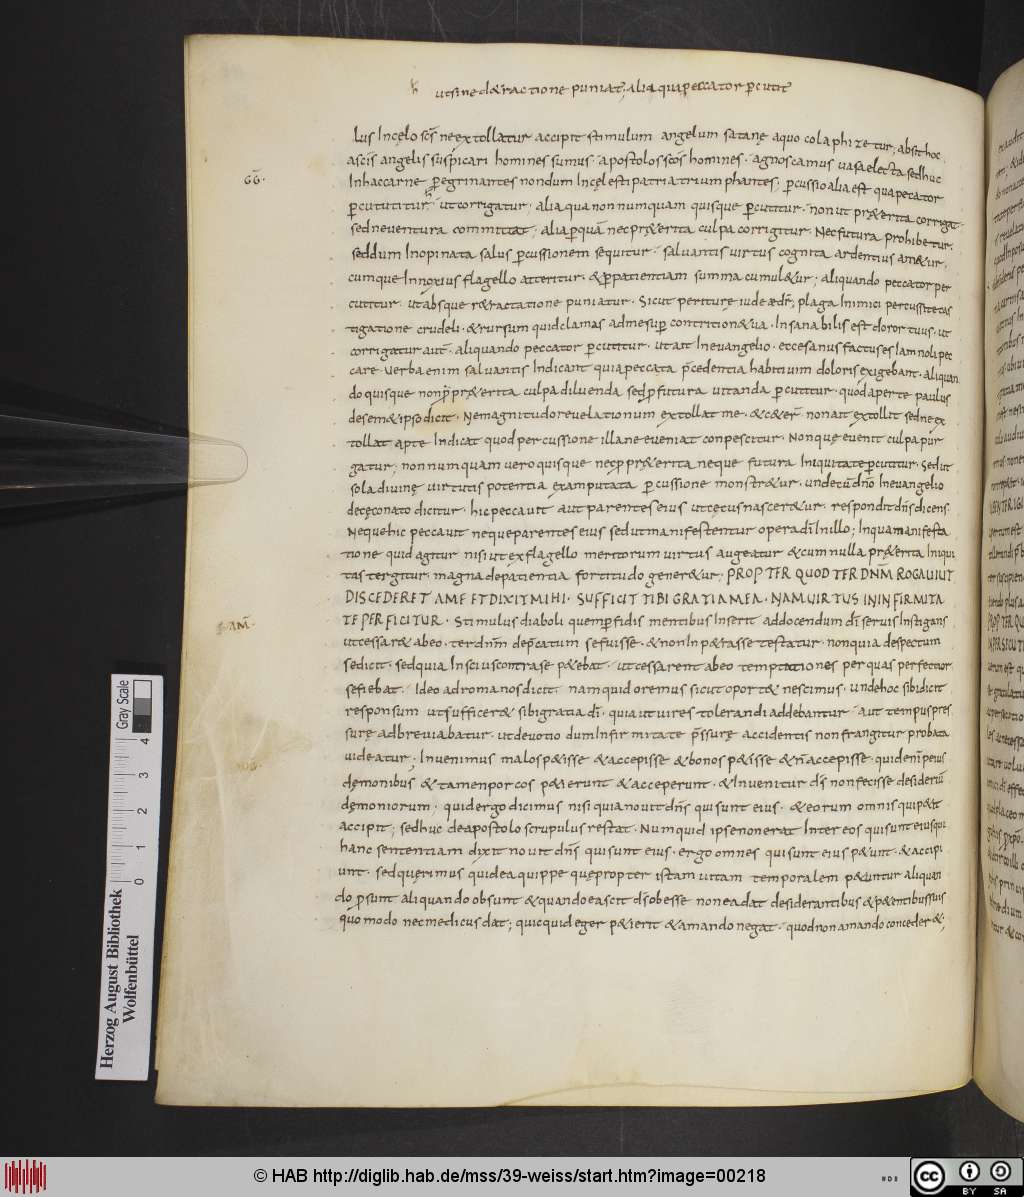 h utsine detractione puniat, aliqua peccator pcutit
lus Incęlo scis neextollatur accipit stimulum angelum satanę aquo colaphizetur; absit hoc
ascis angelis suspicari homines sumus apostolos scos homines · agnoscamus uasa electa sedhuc
Inhaccarne peregrinantes nondum Incęlesti patria triumphantes; pcussio alia est qua peccator
GG.
pcutitur · ut corrigatur; aliqua non numquam quisque pcutitur · non ut pręterita corrigat
sedneuentura committat; alia p quā nec pręterita culpa corrigitur. Nec futura prohibetur;
seddum Inopinata salus pcussionem sequitur · saluantis uirtus cognita ardentius ametur;
cumque Innoxius flagello atteritur · & p patientiam summa cumuletur; aliquando peccator per
cutitur · ut absque retractatione puniatur · Sicut periturę iudeę dr; plaga Inimici percussi te cas
tigatione crudeli · & rursum quid clamas adme sup contritione tua · Insanabilis est dolor tuus · ut
corrigatur aut · aliquando peccator pcutitur · ut ait Ineuangelio · ecce sanus factus es Iam noli pec
care · Verba enim saluantis Indicant quia peccata pcedentia habitum doloris exigebant · aliquan
do quisque non p pręterita culpa diluenda sed p futura uitanda pcutitur · quod aperte paulus
desemetipso dicit · Ne magnitudo reuelationum extollat me · & ceter · non ait extollit sed ne ex
tollat apte Indicat quod percussione illa ne eueniat conpescitur · Non quę euenit culpa pur
gatur; non numquam uero quisque nec p pręterita neque futura Iniquitate pcutitur · Sed ut
sola diuinę uirtutis potentia examputata pcussione monstretur · unde cū dno Ineuangelio
decęco nato dicitur · hic peccauit aut parentes eius ut cęcus nasceretur · respondit dns dicens
Neque hic peccauit neque parentes eius sed ut manifestentur opera di Inillo; In qua manifesta
tione quid agitur nisi ut ex flagello meritorum uirtus augeatur & cum nulla pręterita Iniqui
tas tergitur · magna de patientia fortitudo generetur; PROPTER QUOD TER DNM ROGAUI UT
DISCEDERET AME ET DIXIT MIHI · SUFFICIT TIBI GRATIA MEA · NAM UIRTUS IN INFIRMITA
AM̄.
TE PERFICITUR · Stimulus diaboli quem p fidis mentibus Inserit addocendum di seruis Instigans
ut cessaret abeo · ter dnm depcatum se fuisse · & non Inpetrasse testatur · non quia despectum
se dicit · sed quia Inscius contra se petebat · ut cessarent abeo temptationes per quas perfectior
se fiebat · Ideo adromanos dicit nam quid oremus sicut oportet nescimus · unde hoc sibi dicit
responsum ut sufficeret sibi gratia di · quia ut uires tolerandi addebantur aut tempus pres
surę adbreuiabatur · ut deuotio dum Infirmitate pssurę accidentis non frangitur probata
uideatur; Inuenimus malos petisse & accepisse & bonos petisse & n accepisse · quid enim peius
dęmonibus & tamen porcos petierunt & acceperunt · & Inuenitur ds non fecisse desideriū
dęmoniorum · quid ergo dicimus nisi quia nouit dns qui sunt eius · & eorum omnis qui petit
accipit; sed huc deapostolo scrupulus restat · Numquid ipse non erat Inter eos qui sunt eius qui
hanc sententiam dixit nouit dns qui sunt eius · ergo omnes qui sunt eius petunt · & accipi
unt · sed quęrimus quid ea quippe quę propter istam uitam temporalem petuntur aliquan
do psunt aliquando obsunt & quando ea scit ds obesse non ea dat desiderantibus & petentibus suis
quomodo nec medicus dat; quicquid eger petierit & amando negat · quod non amando concederet;
Herzog August Bibliothek
Wolfenbüttel
0 1 2 3 4
Gray Scale
© HAB http://diglib.hab.de/mss/39-weiss/start.htm?image=00218
cc BY SA